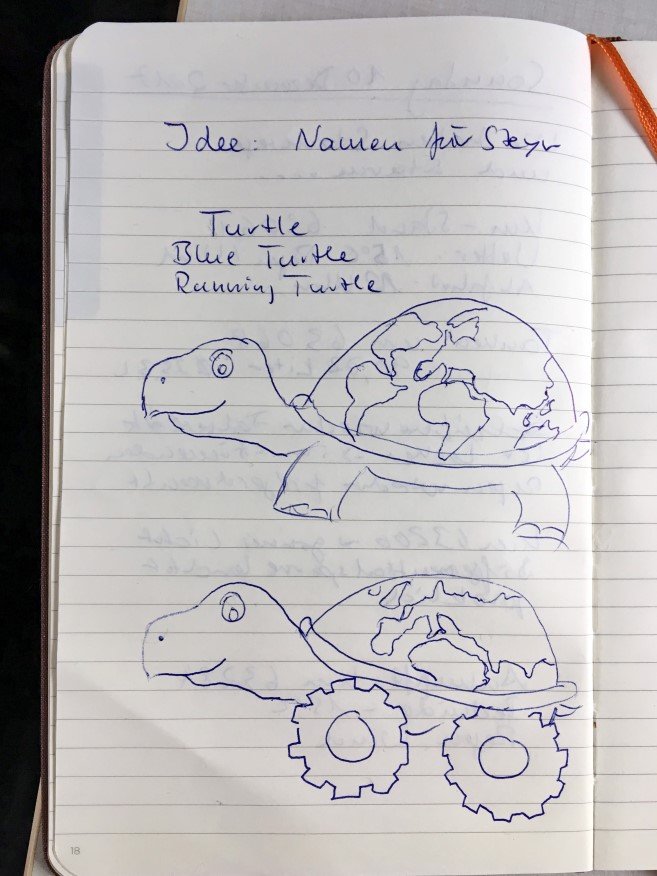 Idee: Namen für Steyr
Turtle
Blue Turtle
Running Turtle
18